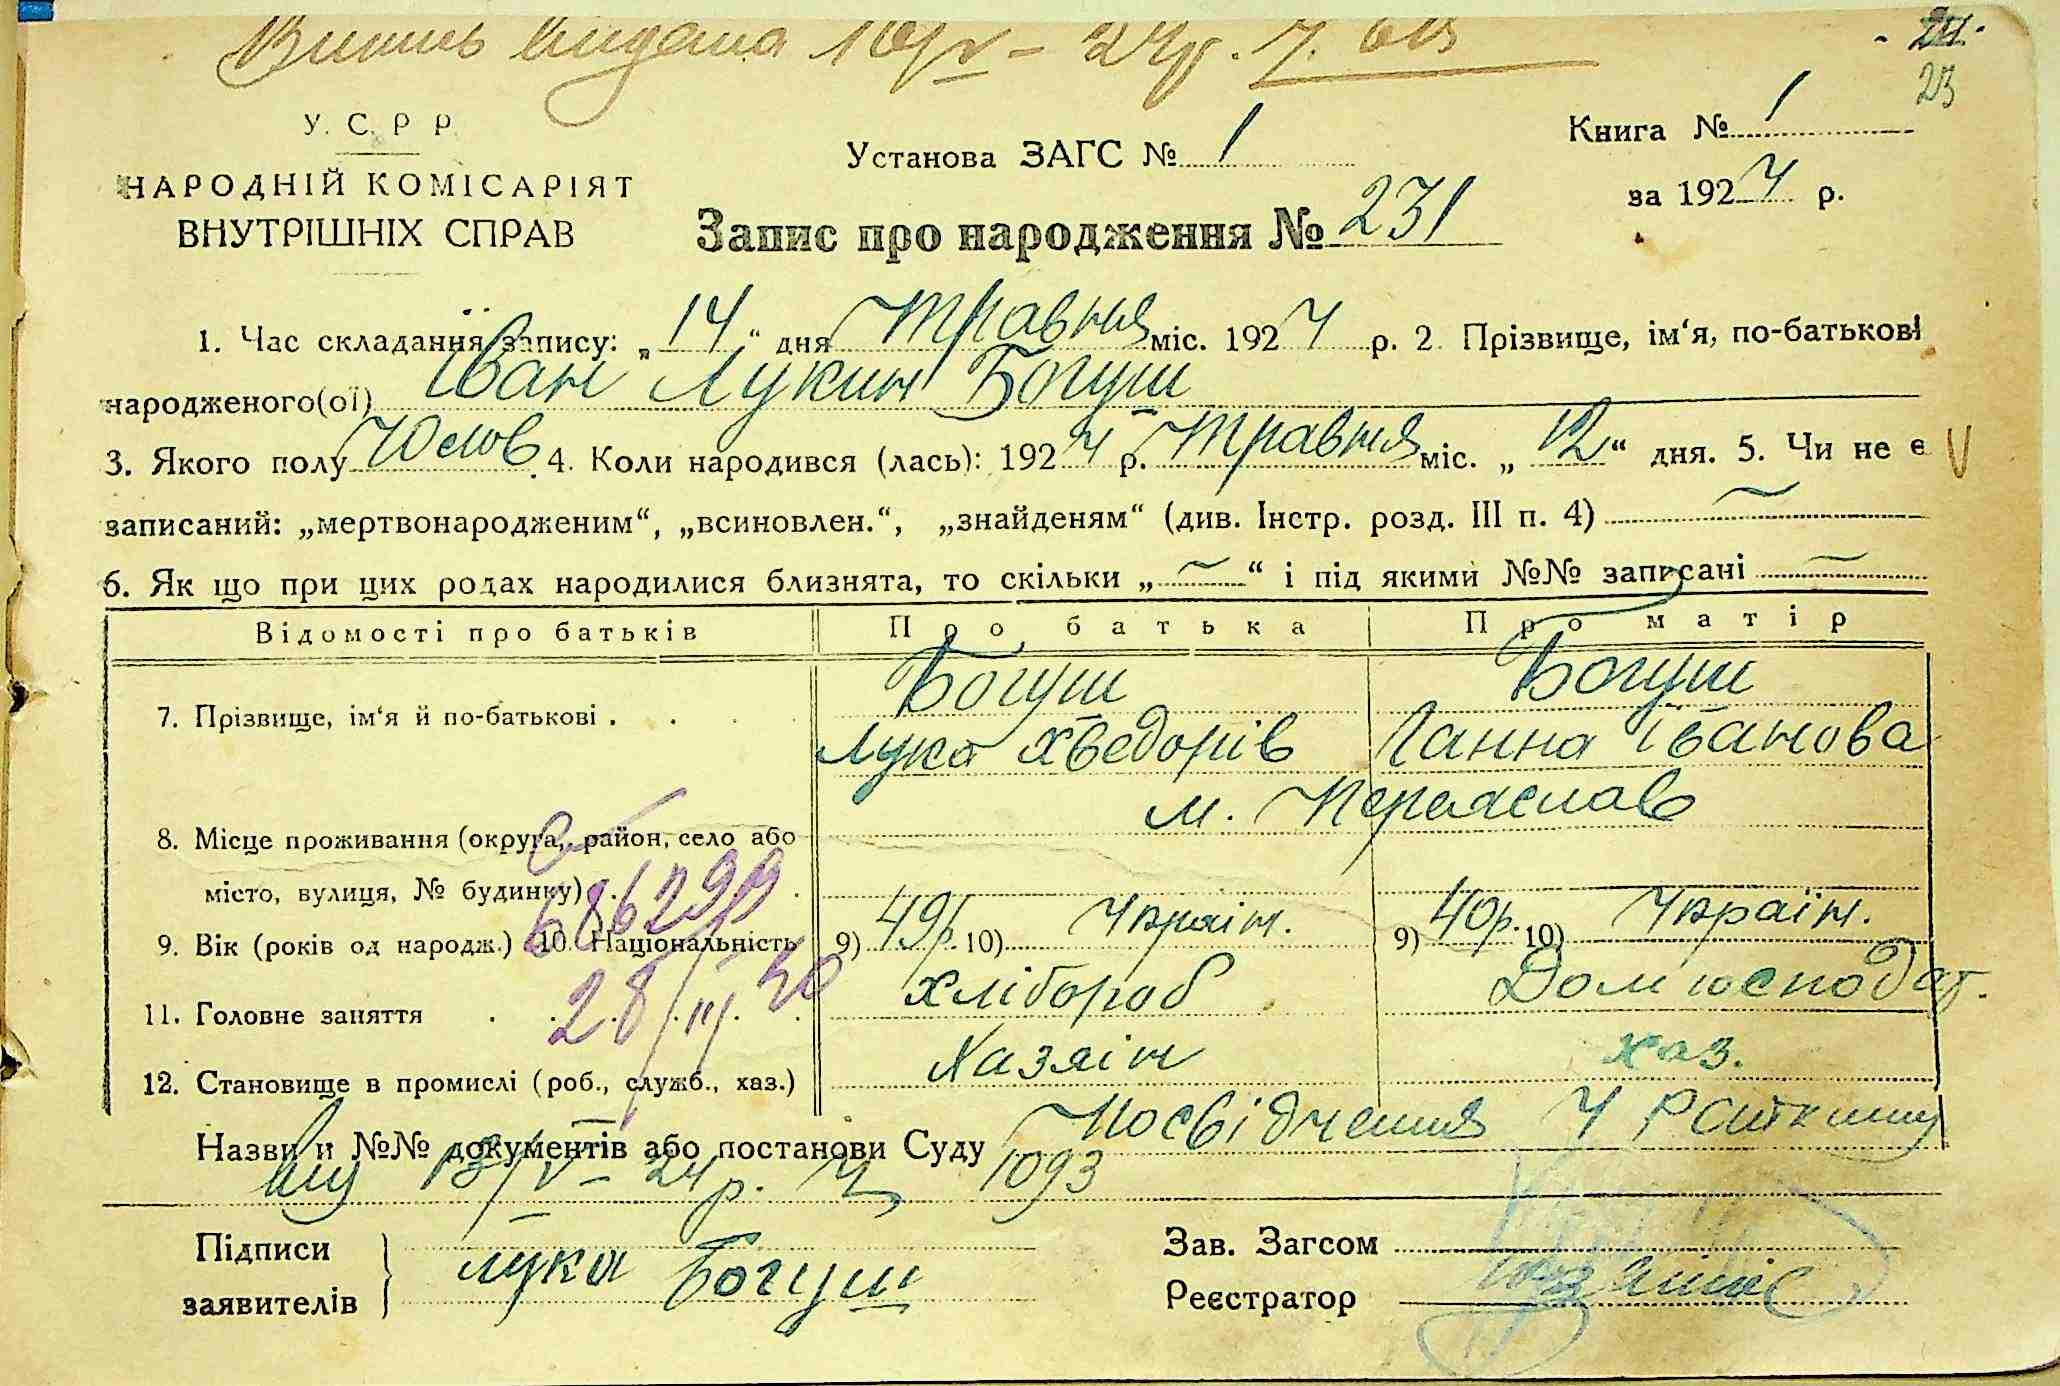 Випись видана 10/V – 24р.
24.
23
У. С. Р Р
Книга № 1
Установа ЗАГС № 1
НАРОДНІЙ КОМІСАРІЯТ
за 1924 р.
ВНУТРІШНІХ СПРАВ
Запис про народження № 231
1. Час складання запису: „14“ дня Травня міс. 1924 р. 2. Прізвище, ім‘я, по-батькові
народженого(ої) Іван Лукин Богуш
3. Якого полу Чолов. 4. Коли народився (лась): 1924 р. Травня міс. „12“ дня. 5. Чи не є
записаний: „мертвонародженим“, „всиновлен.“, „знайденям“ (див. Інстр. розд. III п. 4) ~
6. Як що при цих родах народилися близнята, то скільки „~“ і під якими №№ записані ~
Відомості про батьків Про батька Про матір
Богуш Богуш
7. Прізвище, ім‘я й по-батькові . . . .
Лука Хведорів Ганна Іванова
м. Переяслав
8. Місце проживання (округа, район, село або
місто, вулиця, № будинку) . . .
686299
9. Вік (років од народж.) 10. Національність 9) 49р. 10) Україн. 9) 40р. 10) Україн.
28/III 40
11. Головне заняття . . . . . хлібороб Дом господар.
12. Становище в промислі (роб., служб., хаз.) Хазяїн хаз.
Назви и №№ документів або постанови Суду Посвідчення
13/V – 24р. Ч 1093
Підписи
заявителів
Лука Богуш
Зав. Загсом
Реєстратор